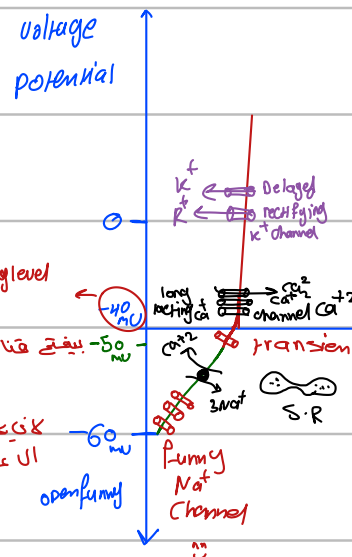 voltage
potential
K+
K+
Delayed
rectifying
K+ channel
0
level
-40
mv
long
acting
Ca+
Ca+2
Ca+
channel Ca+2
-50
mv
بيفتح
Ca+2
transien
3Na+
S.R
-60
mv
Funny
Na+
Channel
open funny